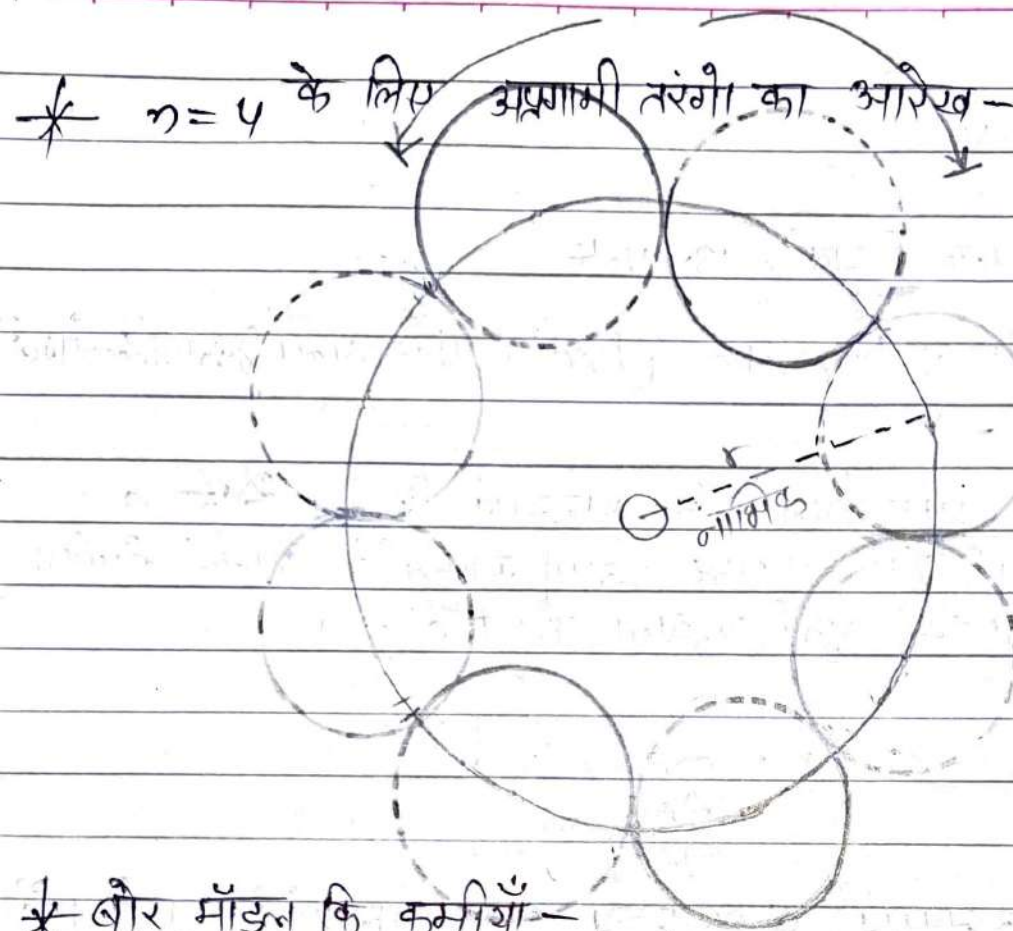 * n = 4 के लिए अप्रगामी तरंगो का आरेख -
r
नाभिक
* बोर मॉडल कि कमीयाँ -